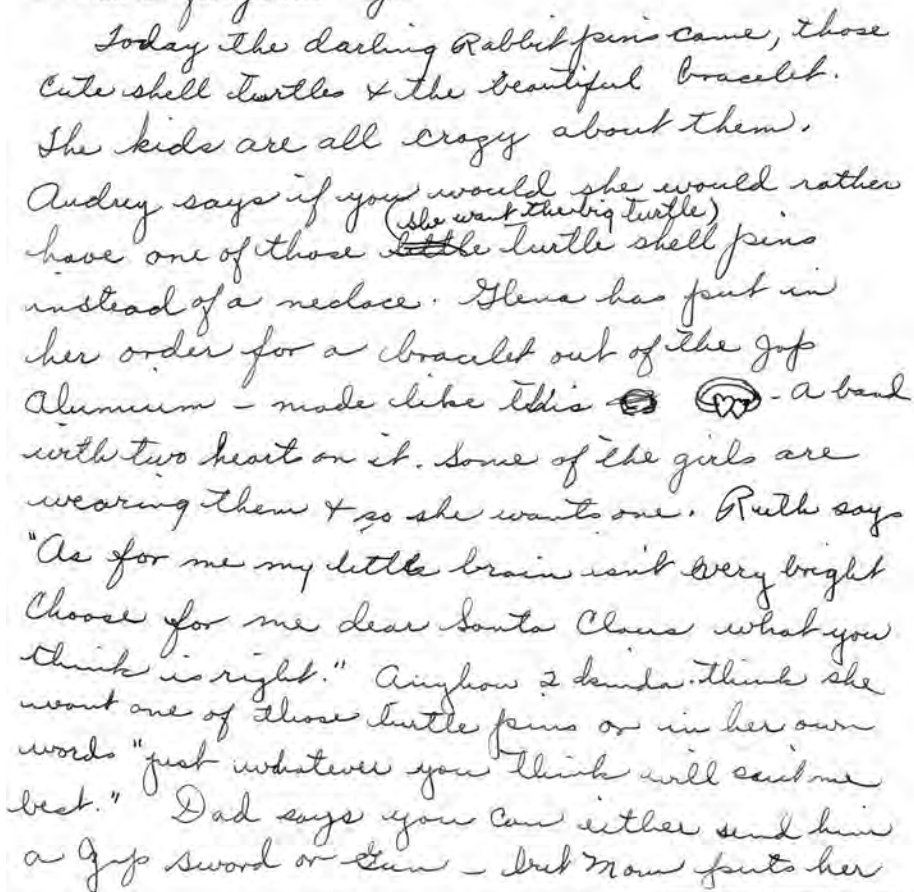 Today the darling Rabbit pins came, those
cute shell turtles & the beautiful bracelet.
The kids are all crazy about them.
Audrey says if you would she would rather
(she want the big turtle)
have one of those little turtle shell pins
instead of a neclace. Glena has put in
her order for a bracelet out of the Jap
Alumium - made like this - a band
with two heart on it. Some of the girls are
wearing them & so she wants one. Ruth says
"As for me my little brain isn't very bright
Choose for me dear Santa Claus what you
think is right." Anyhow I kinda think she
want one of those turtle pins or in her own
words "just whatever you think will suit me
best." Dad says you can either send him
a Jap sword or Gun - but Mom puts her